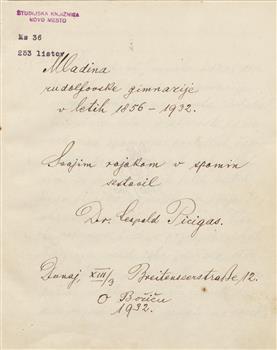 ŠTUDIJSKA KNJIŽNICA
NOVO MESTO
Ms 36
253 listov
Mladina
rudolfovske gimnazije
v letih 1856-1932.
Svojim rojakom v spomin
sestavil
Dr. Leopold Picigas.
Dunaj, XIII/3 Breitenseerstraße 12.
O Božiču
1932.